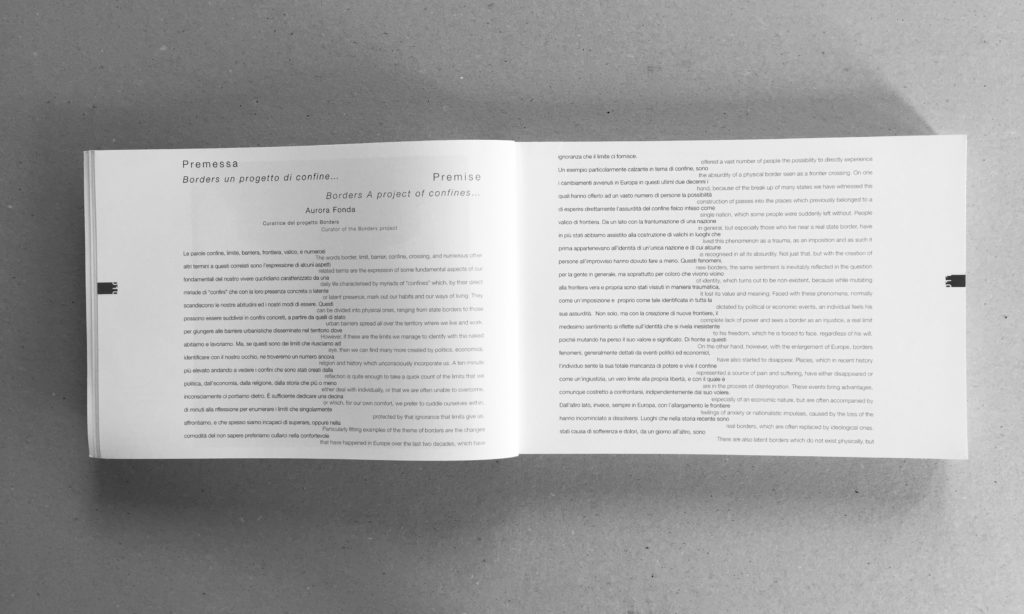 Premessa
Borders un progetto di confine...
Premise
Borders A project of confines...
Aurora Fonda
Curatrice del progetto Borders
Curator of the Borders project
Le parole confine, limite, barriera, frontiera, valico, e numerosi
The words border, limit, barrier, confine, crossing, and numerous other
altri termini a questi correlati sono l'espressione di alcuni aspetti
related terms are the expression of some fundamental aspects of our
fondamentali del nostro vivere quotidiano caratterizzato da una
daily life characterised by myriads of "confines" which, by their direct
miriade di "confini" che con la loro presenza concreta o latente
or latent presence, mark out our habits and our ways of living. They
scandiscono le nostre abitudini ed i nostri modi di essere. Questi
can be divided into physical ones, ranging from state borders to those
possono essere suddivisi in confini concreti, a partire da quelli di stato
urban barriers spread all over the territory where we live and work.
per giungere alle barriere urbanistiche disseminate nel territorio dove
However, if these are the limits we manage to identify with the naked
abitiamo e lavoriamo. Ma, se questi sono dei limiti che riusciamo ad
eye, then we can find many more created by politics, economics,
identificare con il nostro occhio, ne troveremo un numero ancora
religion and history which unconsciously incorporate us. A ten minute
più elevato andando a vedere i confini che sono stati creati dalla
reflection is quite enough to take a quick count of the limits that we
politica, dall'economia, dalla religione, dalla storia che più o meno
either deal with individually, or that we are often unable to overcome,
inconsciamente ci portiamo dietro. È sufficiente dedicare una decina
or which, for our own comfort, we prefer to cuddle ourselves within,
di minuti alla riflessione per enumerare i limiti che singolarmente
protected by that ignorance that limits give us.
affrontiamo, e che spesso siamo incapaci di superare, oppure nella
Particularly fitting examples of the theme of borders are the changes
comodità del non sapere preferiamo cullarci nella confortevole
that have happened in Europe over the last two decades, which have
ignoranza che il limite ci fornisce.
offered a vast number of people the possibility to directly experience
Un esempio particolarmente calzante in tema di confine, sono
the absurdity of a physical border seen as a frontier crossing. On one
i cambiamenti avvenuti in Europa in questi ultimi due decenni i
hand, because of the break up of many states we have witnessed the
quali hanno offerto ad un vasto numero di persone la possibilità
construction of passes into the places which previously belonged to a
di esperire direttamente l'assurdità del confine fisico inteso come
single nation, which some people were suddenly left without. People
valico di frontiera. Da un lato con la frantumazione di una nazione
in general, but especially those who live near a real state border, have
in più stati abbiamo assistito alla costruzione di valichi in luoghi che
lived this phenomenon as a trauma, as an imposition and as such it
prima appartenevano all'identità di un'unica nazione e di cui alcune
is recognised in all its absurdity. Not just that, but with the creation of
persone all'improvviso hanno dovuto fare a meno. Questi fenomeni,
new borders, the same sentiment is inevitably reflected in the question
per la gente in generale, ma soprattutto per coloro che vivono vicino
of identity, which turns out to be non-existent, because while mutating
alla frontiera vera e propria sono stati vissuti in maniera traumatica,
it lost its value and meaning. Faced with these phenomena, normally
come un'imposizione e proprio come tale identificata in tutta la
dictated by political or economic events, an individual feels his
sua assurdità. Non solo, ma con la creazione di nuove frontiere, il
complete lack of power and sees a border as an injustice, a real limit
medesimo sentimento si riflette sull'identità che si rivela inesistente
to his freedom, which he is forced to face, regardless of his will.
poiché mutando ha perso il suo valore e significato. Di fronte a questi
On the other hand, however, with the enlargement of Europe, borders
fenomeni, generalmente dettati da eventi politici ed economici,
have also started to disappear. Places, which in recent history
l'individuo sente la sua totale mancanza di potere e vive il confine
represented a source of pain and suffering, have either disappeared or
come un'ingiustizia, un vero limite alla propria libertà, e con il quale è
are in the process of disintegration. These events bring advantages,
comunque costretto a confrontarsi, indipendentemente dal suo volere.
especially of an economic nature, but are often accompanied by
Dall'altro lato, invece, sempre in Europa, con l'allargamento le frontiere
feelings of anxiety or nationalistic impulses, caused by the loss of the
hanno incominciato a dissolversi. Luoghi che nella storia recente sono
real borders, which are often replaced by ideological ones.
stati causa di sofferenza e dolori, da un giorno all'altro, sono
There are also latent borders which do not exist physically, but